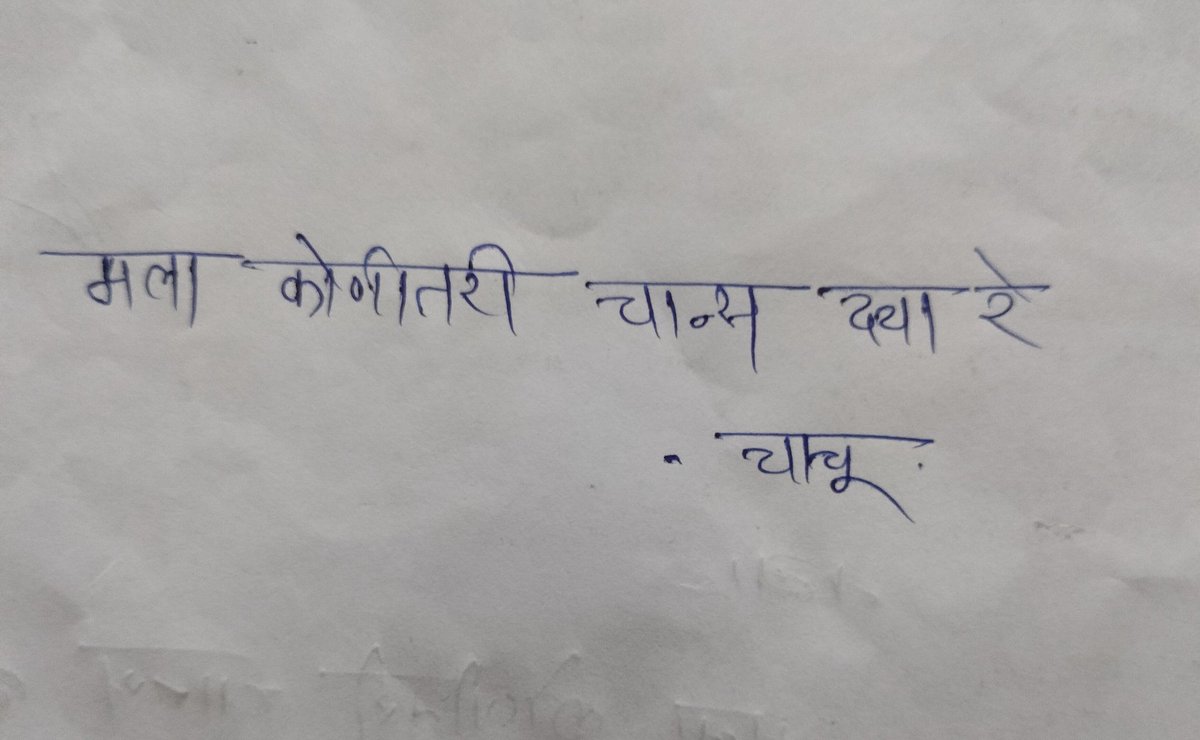 मला कोणीतरी चान्स द्या रे
- चाचू.